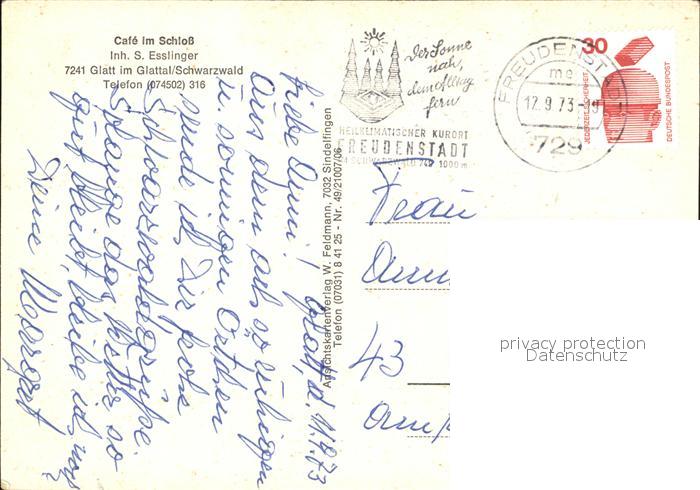 Café im Schloß
Inh. S. Esslinger
7241 Glatt im Glattal/Schwarzwald
Telefon (074502) 316
Glatt, d. 11.9.73
Liebe Anni!
Aus dem ach so ruhigen
u. sonnigen Örtchen
sende ich Dir frohe
Schwarzwaldgrüße.
Solange das Wetter so
gut bleibt, bleibe ich noch
Deine Margret
Ansichtskartenverlag W. Feldmann, 7032 Sindelfingen
Telefon (07031) 8 41 25 - Nr. 49/21007/06
Der Sonne
nah,
dem Alltag
fern
HEILKLIMATISCHER KURORT
FREUDENSTADT
IM SCHWARZWALD 740 1000 m
FREUDENSTADT
me
12.9.73
729
30
JEDERZEIT SICHERHEIT
DEUTSCHE BUNDESPOST
Frau
43
privacy protection
Datenschutz